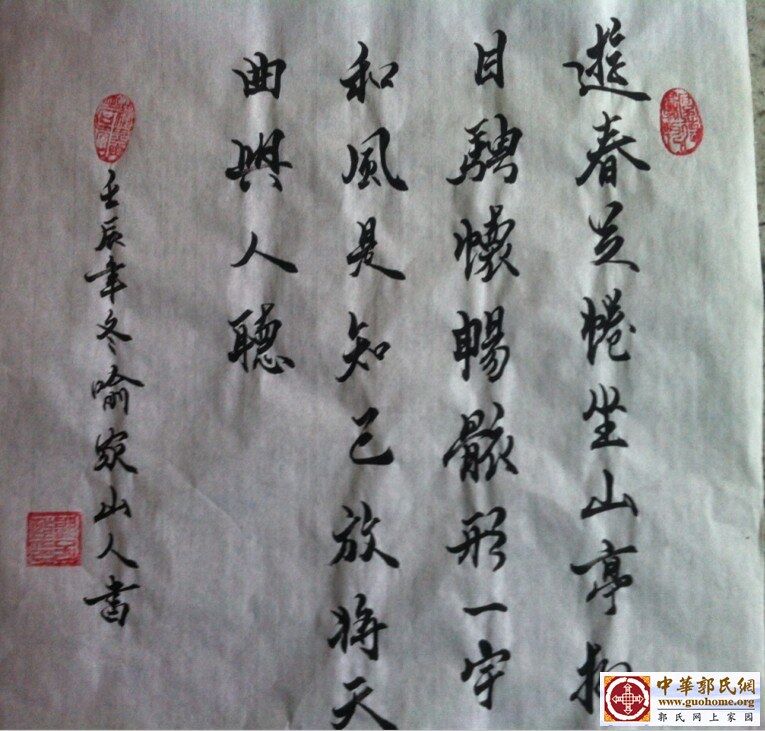 遊春足倦坐山亭
目騁懷暢骸形一宇
和風是知己放將天
曲與人聽
壬辰年冬喻家山人書
中華郭氏網
www.guohome.org
郭氏网上家园